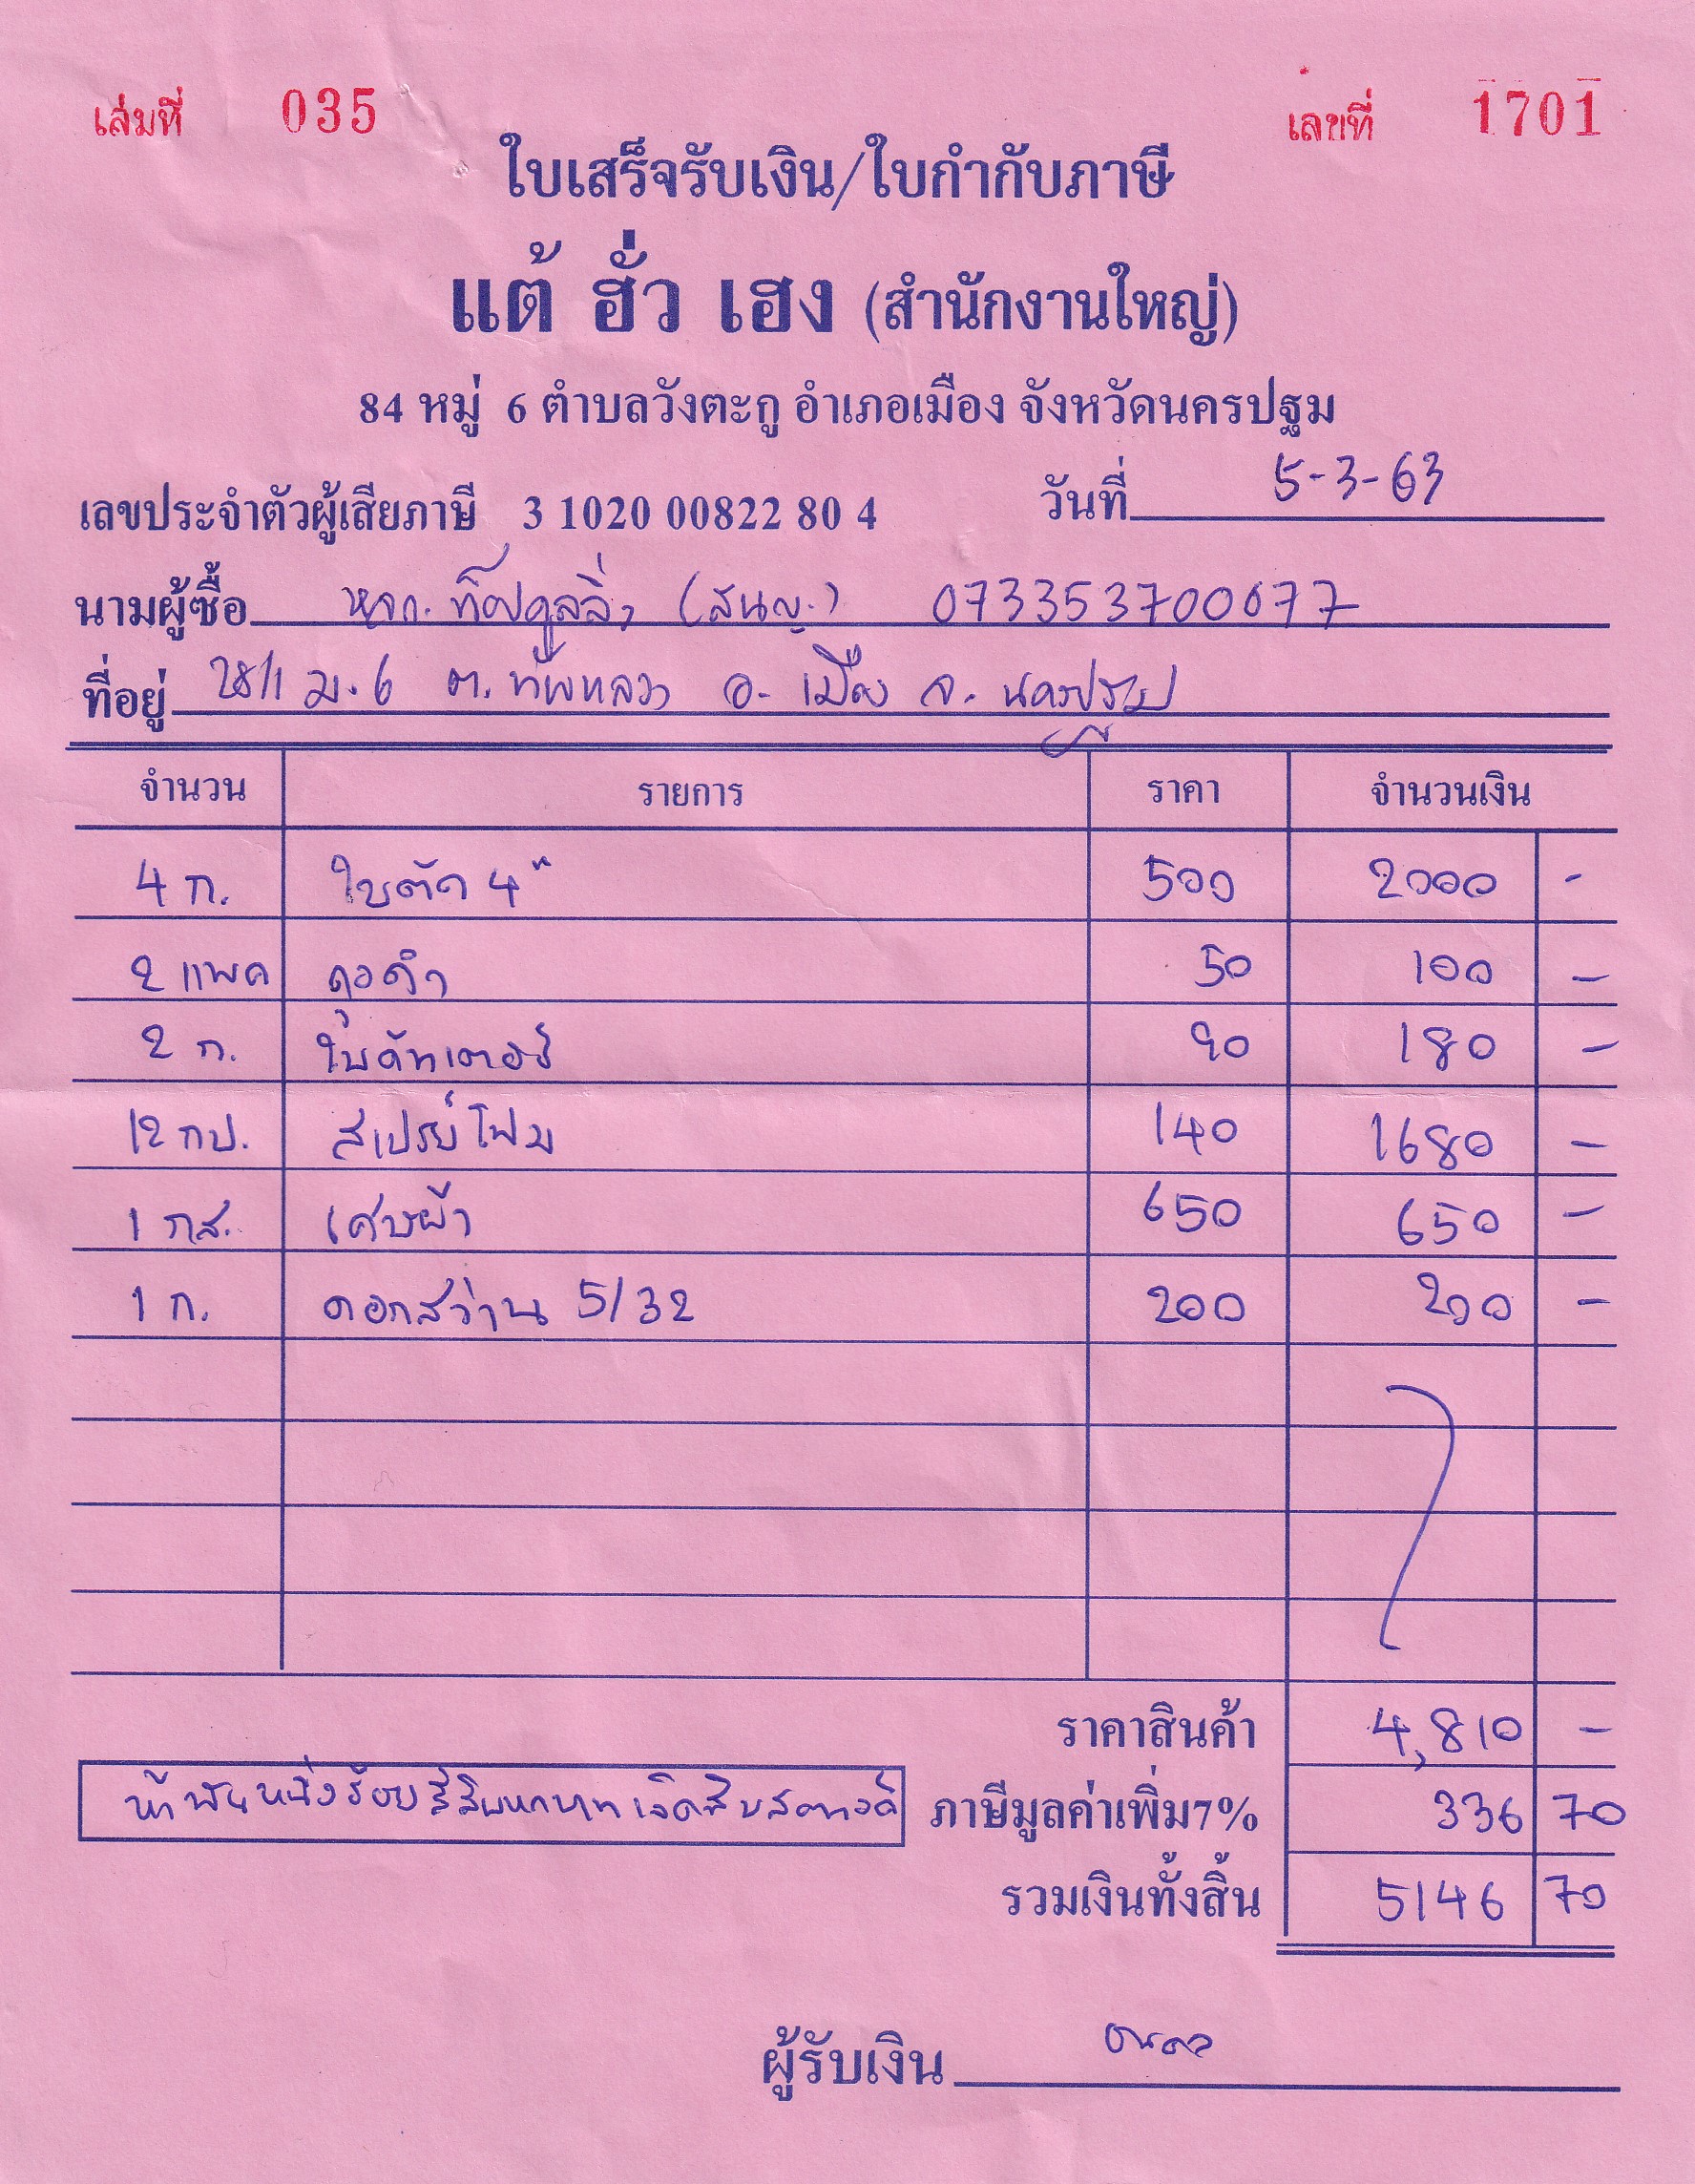 เล่มที่ 035 เลขที่ 1701
ใบเสร็จรับเงิน/ใบกำกับภาษี
แต้ ฮั่ว เฮง (สำนักงานใหญ่)
84 หมู่ 6 ตำบลวังตะกู อำเภอเมือง จังหวัดนครปฐม
เลขประจำตัวผู้เสียภาษี 3 1020 00822 80 4 วันที่ 5-3-63
นามผู้ซื้อ หจก. ท็อปคูลลิ่ง (สนญ.) 073353700677
ที่อยู่ 28/1 ม.6 ต. ทัพหลวง อ. เมือง จ. นครปฐม
จำนวน รายการ ราคา จำนวนเงิน
4 ก. ใบตัด 4" 500 2000 -
2 แพค ถุงดำ 50 100 -
2 ก. ใบคัทเตอร์ 90 180 -
12 กป. สเปรย์โฟม 140 1680 -
1 กส. เศษผ้า 650 650 -
1 ก. ดอกสว่าน 5/32 200 200 -
ราคาสินค้า 4,810 -
ห้าพันหนึ่งร้อยสี่สิบหกบาทเจ็ดสิบสตางค์ ภาษีมูลค่าเพิ่ม7% 336 70
รวมเงินทั้งสิ้น 5146 70
ผู้รับเงิน